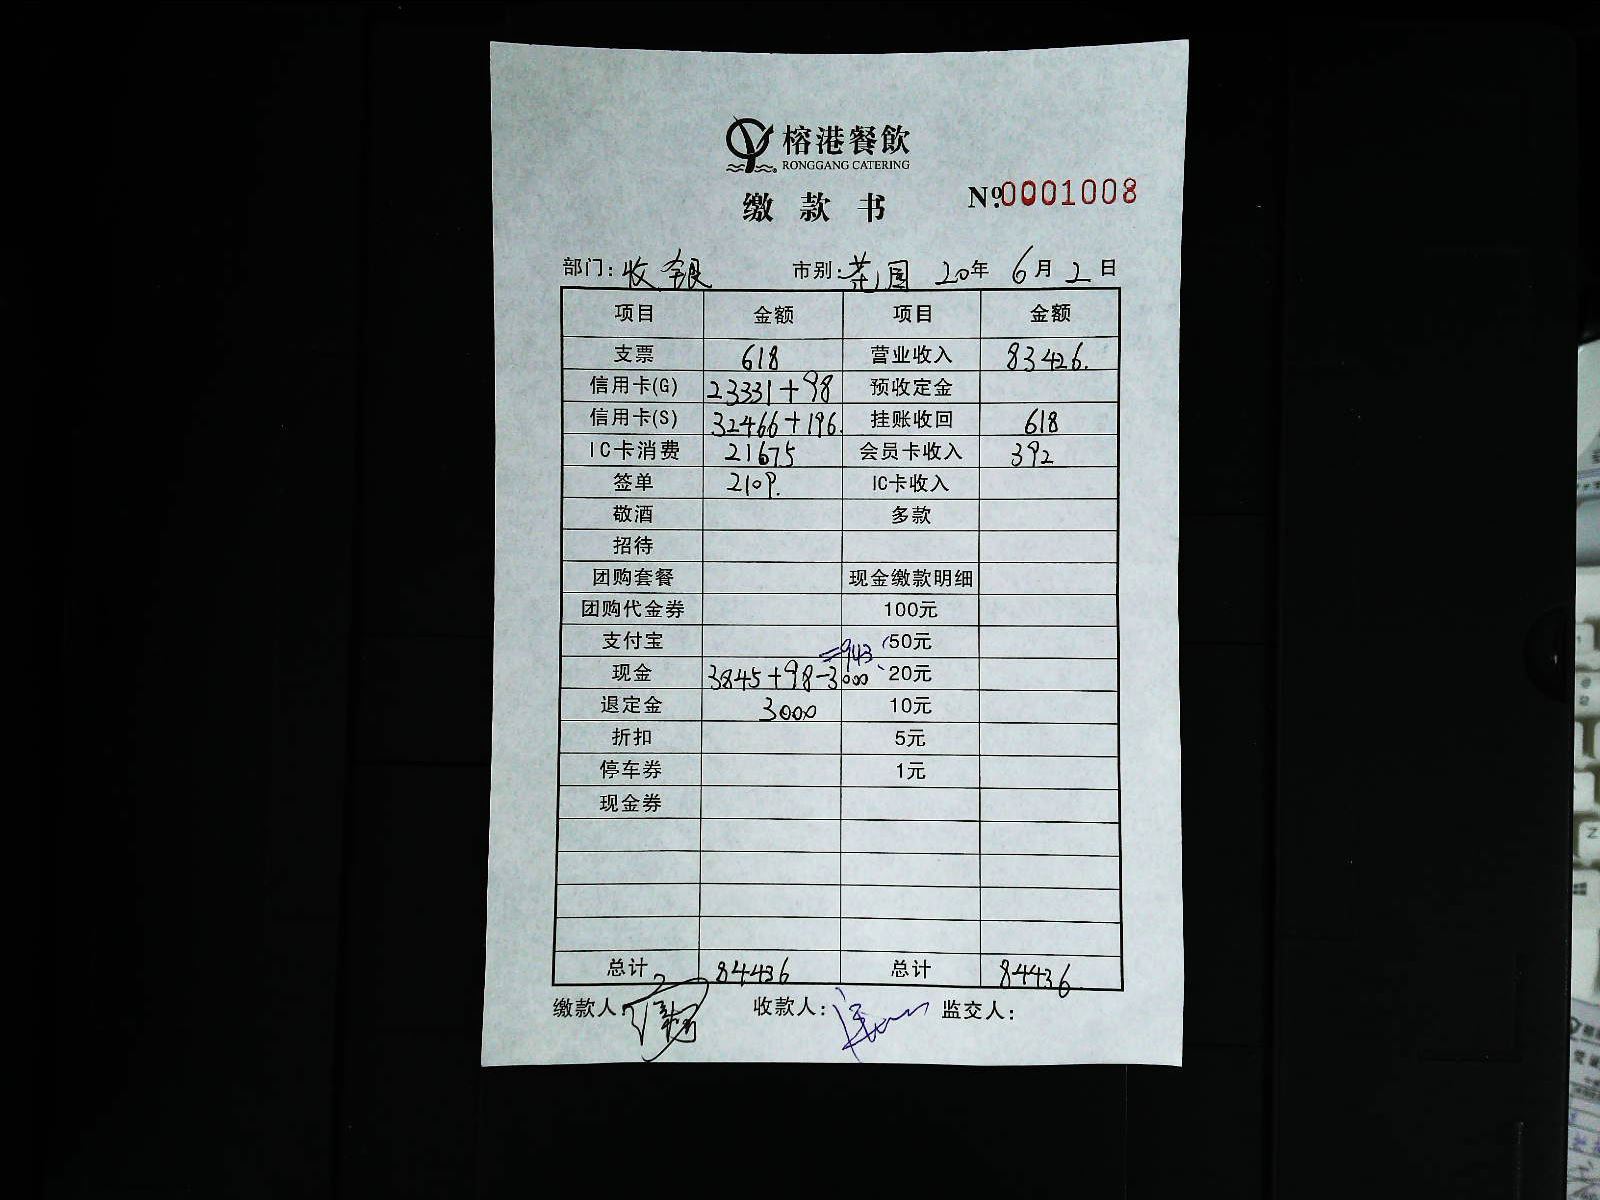 榕港餐飲
RONGGANG CATERING
缴款书 Nº.0001008
部门: 收银 市别: 茶园 20年 6月 2日
项目 金额 项目 金额
支票 618 营业收入 83426.
信用卡(G) 23331+98 预收定金
信用卡(S) 32466+196. 挂账收回 618
IC卡消费 21675 会员卡收入 392
签单 2109. IC卡收入
敬酒 多款
招待
团购套餐 现金缴款明细
团购代金券 100元
支付宝 50元
=943
现金 3845+98-3000 20元
退定金 3000 10元
折扣 5元
停车券 1元
现金券
总计 84436 总计 84436.
缴款人: 收款人: 监交人: